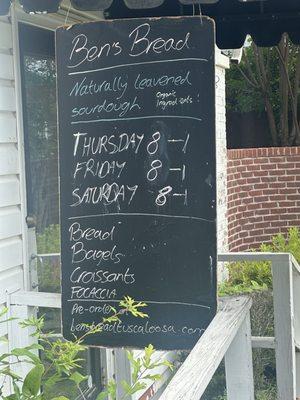 Ben's Bread
Naturally leavened
sourdough Organic Ingredients!
THURSDAY 8-1
FRIDAY 8-1
SATURDAY 8-1
Bread
Bagels
Croissants
FOCACCIA
Pre-order
bensbreadtuscaloosa.com